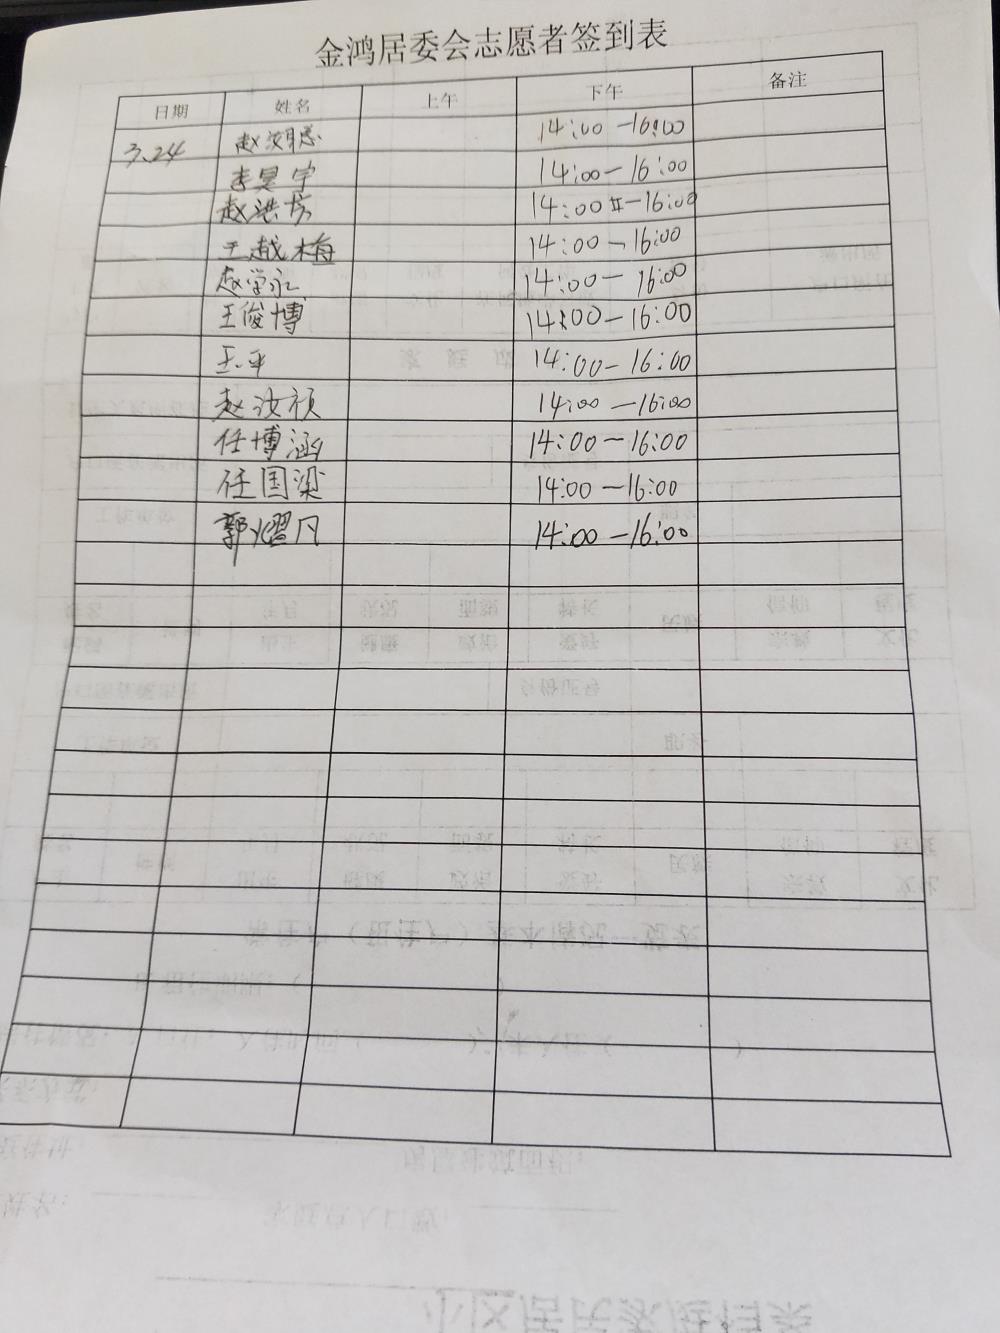 金鸿居委会志愿者签到表
日期 姓名 上午 下午 备注
3.24 赵汝聪 14:00-16:00
李昊宇 14:00-16:00
赵洪芳 14:00-16:00
王越梅 14:00-16:00
赵学永 14:00-16:00
王俊博 14:00-16:00
王平 14:00-16:00
赵汝颀 14:00-16:00
任博涵 14:00-16:00
任国梁 14:00-16:00
郭耀凡 14:00-16:00